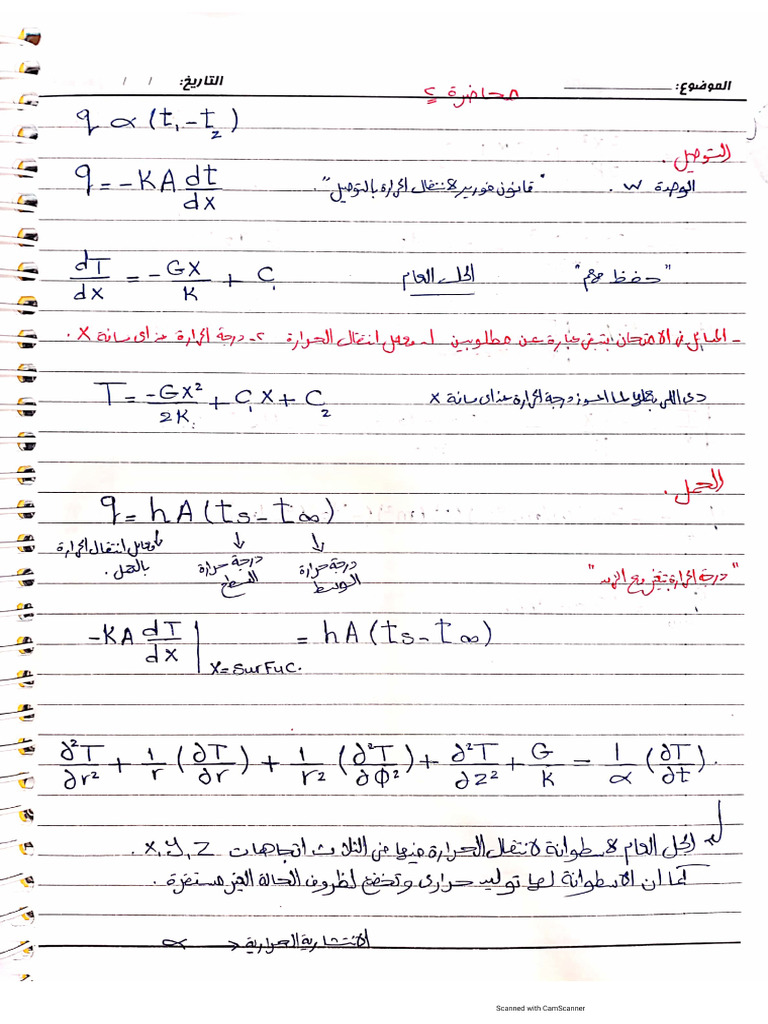 الموضوع: التاريخ: / /
محاضرة ٢
q ∝ (t₁ - t₂)
التوصيل .
q = -KA dt/dx الوحدة W . "قانون فورير لانتقال الحرارة بالتوصيل".
dT/dx = -Gx/K + C₁ الحل العام "حفظ مهم"
- المسائل في الامتحان بتبقى عبارة عن مطلوبين ١- معدل انتقال الحرارة ٢- درجة الحرارة عند اى مسافة X .
T = -Gx²/2K + C₁x + C₂ دى اللى لما احسوز درجة الحرارة عند اى مسافة X
الحمل .
q = hA(ts - t∞)
معامل انتقال الحرارة بالحمل . درجة حرارة السطح درجة حرارة الوسط
"درجة الحرارة بتتغير مع الزمن"
-KA dT/dx | X=Surfuc. = hA(ts - t∞)
∂²T/∂r² + 1/r (∂T/∂r) + 1/r² (∂²T/∂Φ²) + ∂²T/∂z² + G/k = 1/α (∂T/∂t).
الحل العام لاسطوانة لانتقال الحرارة فيها من الثلاث اتجاهات X,Y,Z .
كما ان الاسطوانة لها توليد حرارى وتخضع لظروف الحالة الغير مستقرة .
الانتشارية الحرارية ← α
Scanned with CamScanner